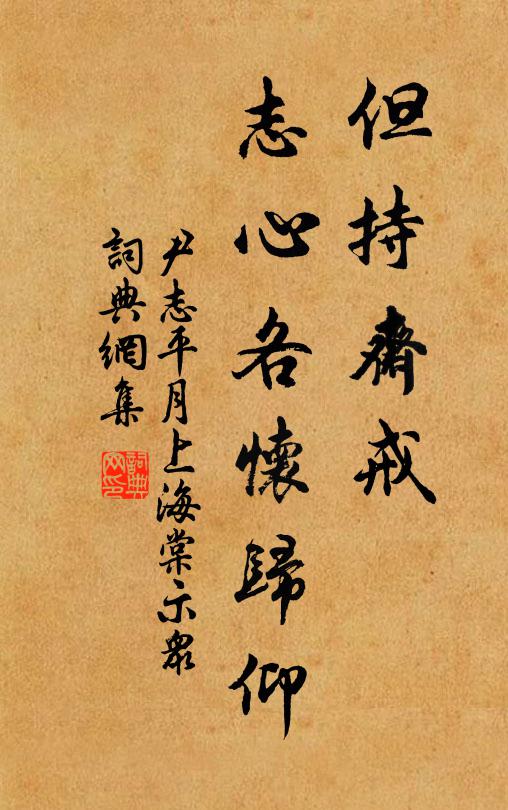 但持齋戒
志心各懷歸仰
尹志平月上海棠示眾
詞典網集
詞典網印